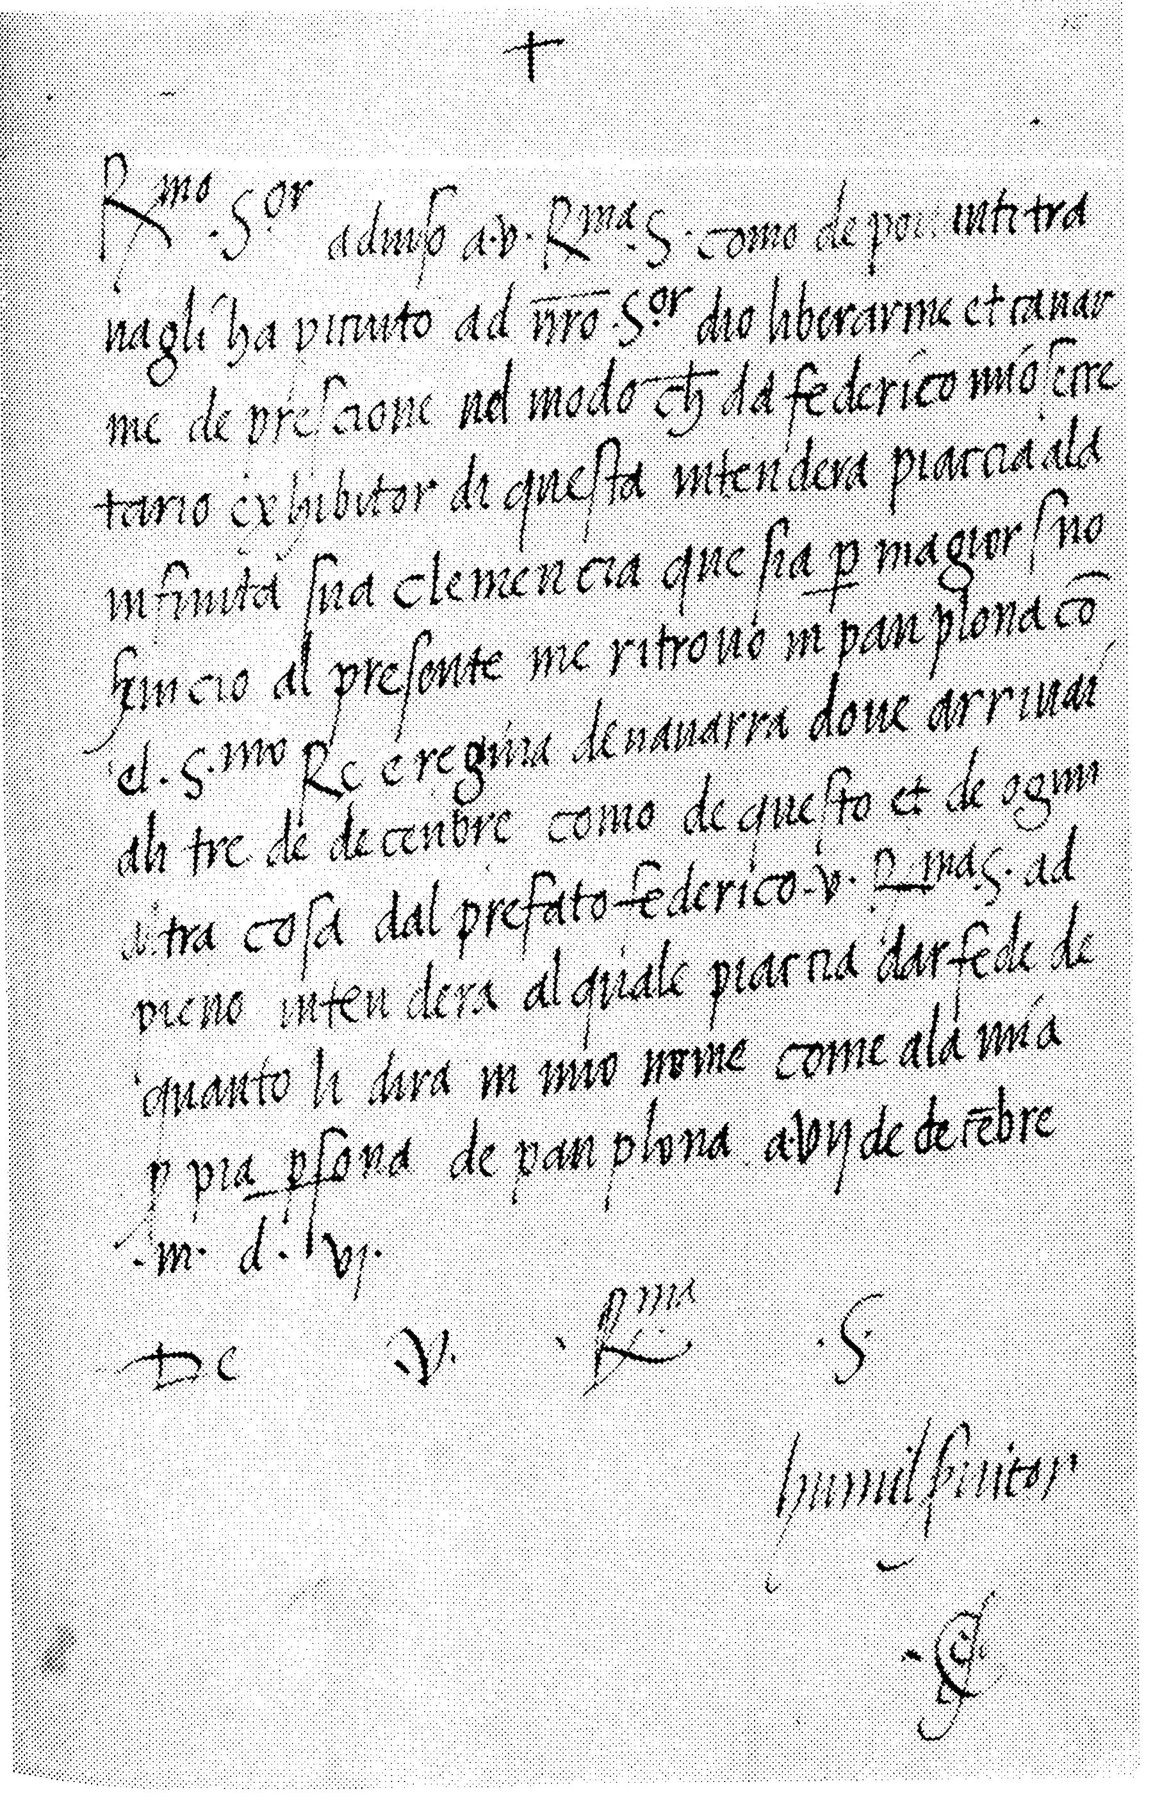 †
Rmo. Sor adviso a.v. Rma. S. como de poi infi tra
vagli ha piciuto ad nr̄o. Sor dio liberarme et cavar
me de presione nel modo ch̄ da federico mio secre
tario exhibitor di questa intendera piaccia ala
infinita sua clemencia que sia p magior suo
servicio al presente me ritrovo in panplona cō
el. S.mo Re e regina de navarra dove arrivai
ali tre de decenbre como de questo et de ogni
altra cosa dal prefato federico .v. Rma. S. ad
pieno intendera al quale piaccia dar fede de
quanto li dira in mio nome come ala mia
ppia psona de panplona a.vij de decēbre
.m. d. vj.
De .V. .Rma .S.
humil servitor